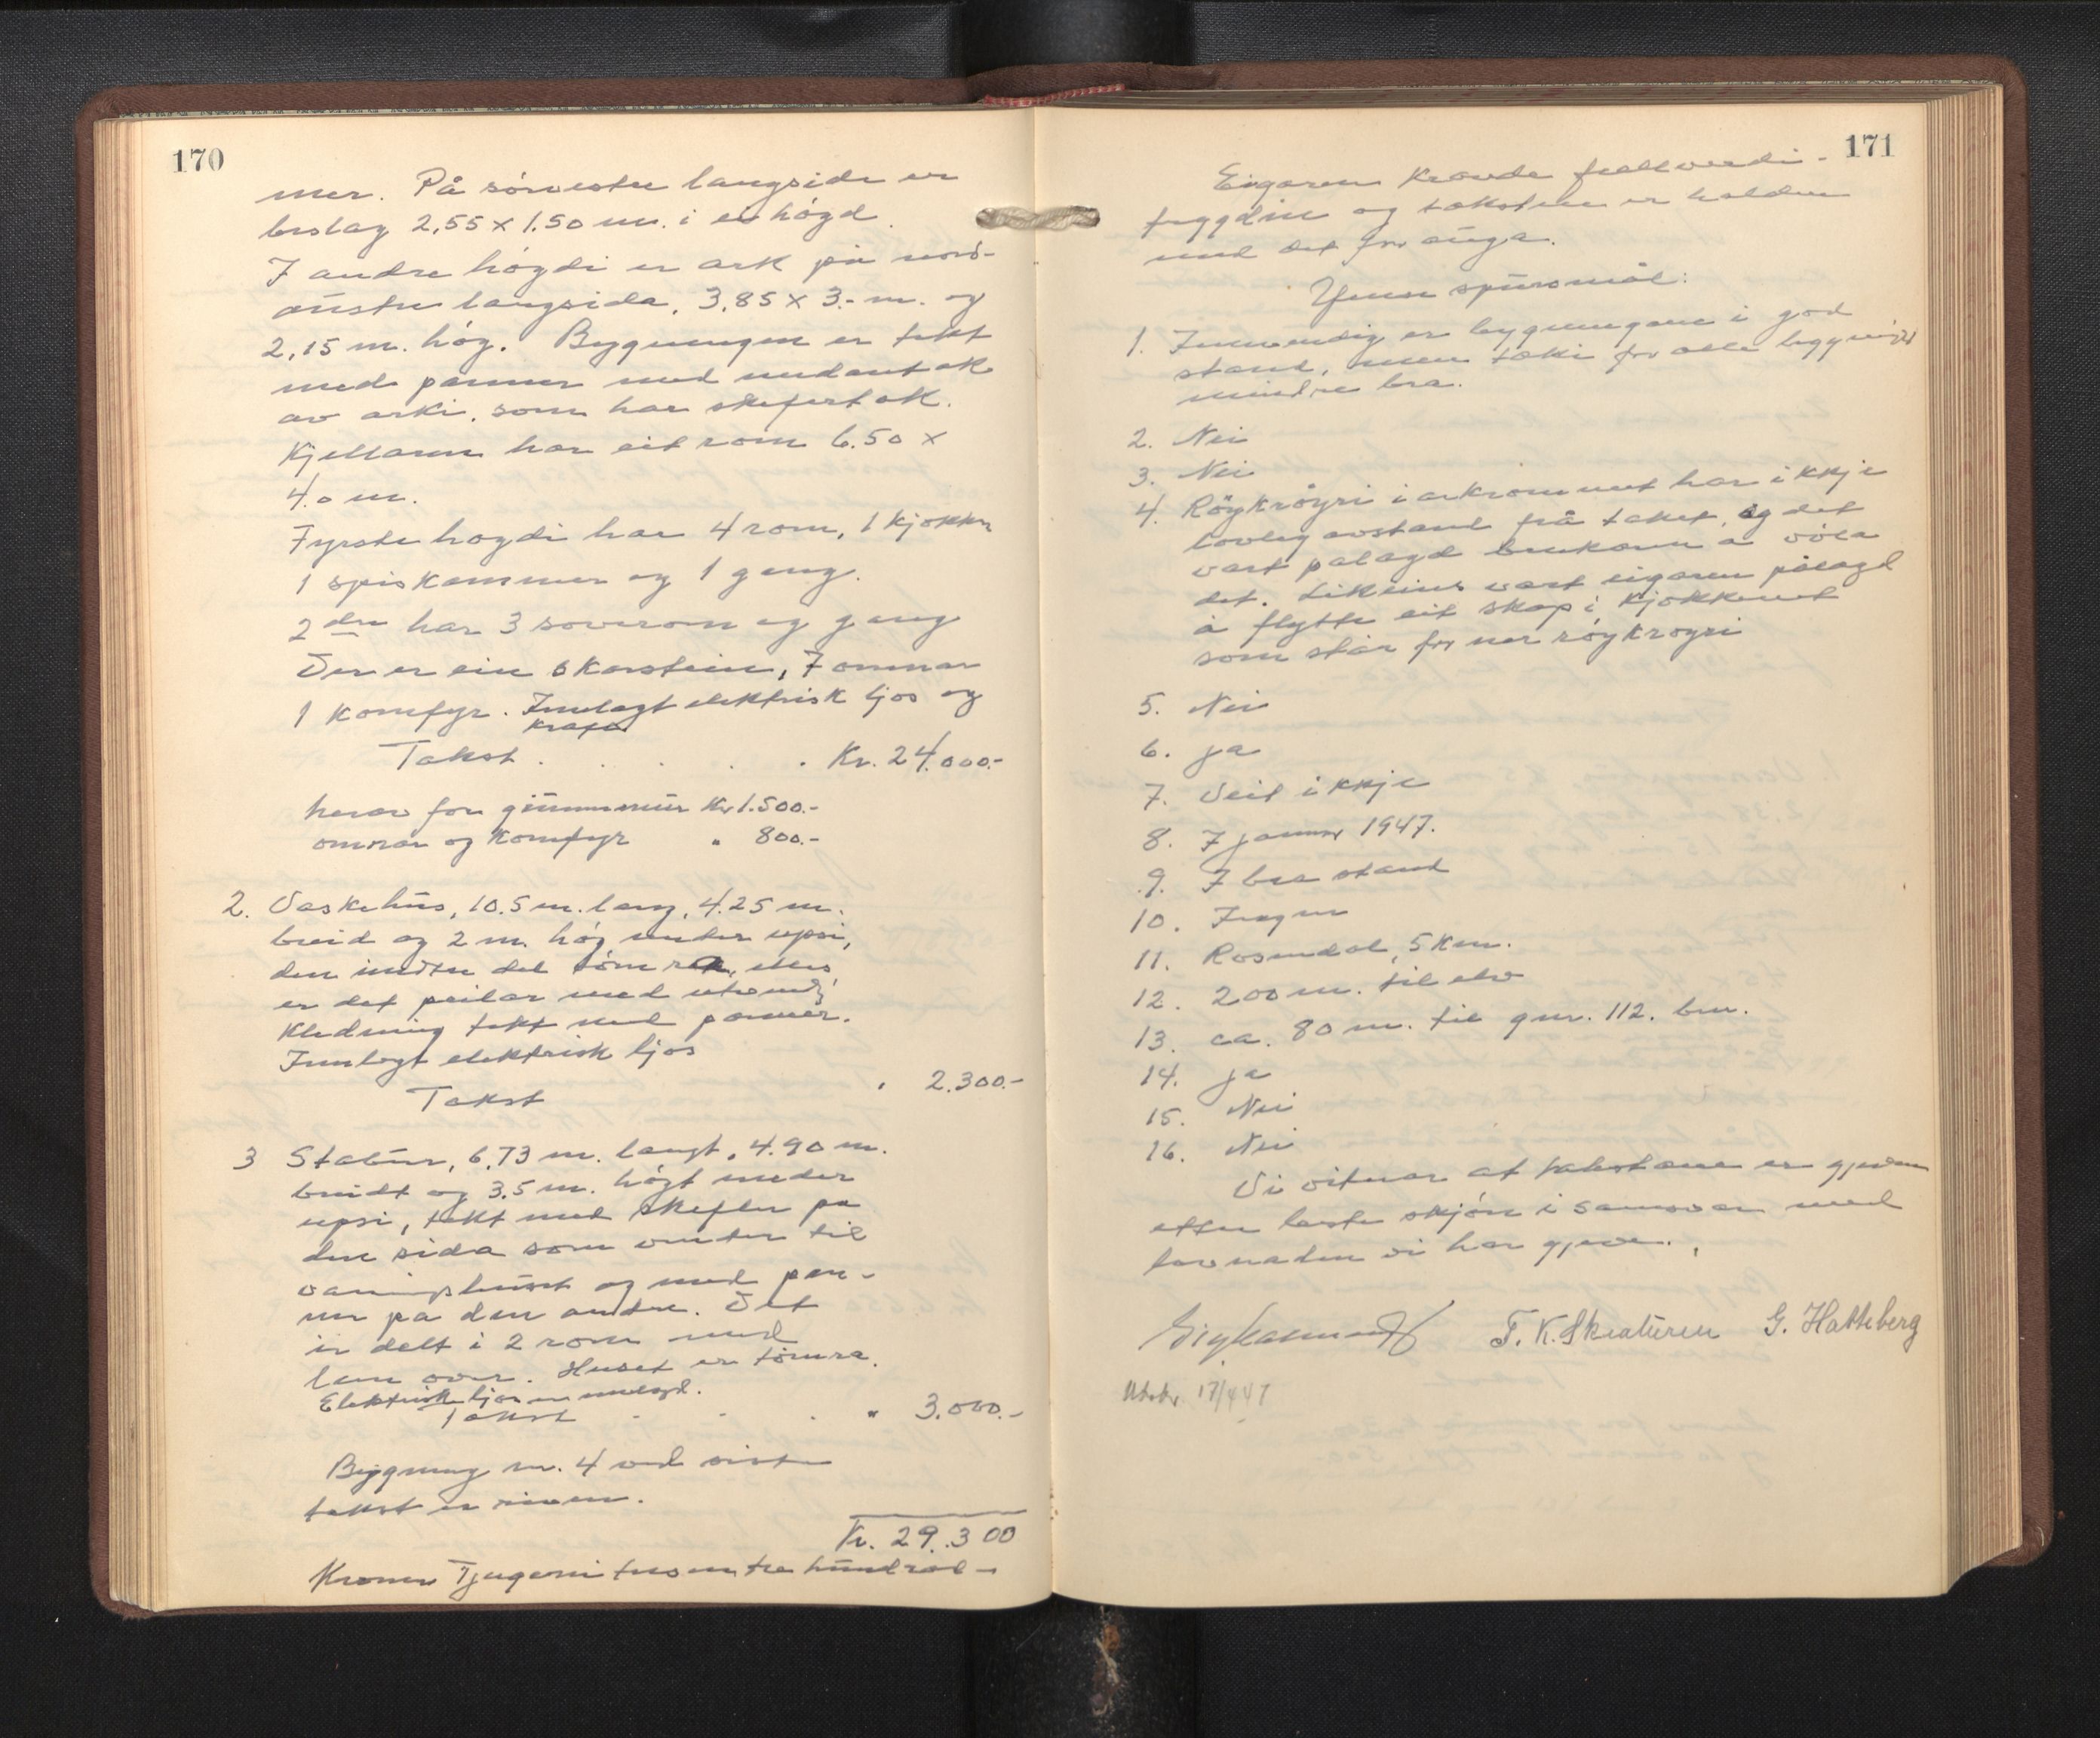 170
mer. På sørvestre langside er
bislag 2,55 x 1.50 m. i ei høgd.
I andre høgdi er ark på nord-
austre langsida, 3,85 x 3.- m. og
2,15 m. høg. Bygningen er tekt
med panner med undantak
av arki, som har skifertak.
Kjellaren har eit rom 6.50 x
4.0 m.
Fyrste høgdi har 4 rom, 1 kjøkken
1 spiskammer og 1 gang.
2dre har 3 soverom og gang
Der er ein skorstein, 7 omnar
1 komfyr. Innlagt elektrisk ljos og
kraft
Takst . . . . . Kr. 24.000.-
herav for grunnmur Kr 1.500.-
omnar og komfyr " 800.-
2. Vaskehus, 10.5 m. lang, 4.25 m.
breid og 2 m. høg under upsi,
den indre del tømra, elles
er det peilar med utvendi
kledning tekt med panner.
Innlagt elektrisk ljos
Takst " 2.300.-
3 Stabur, 6,73 m. langt, 4.90 m.
breidt og 3.5 m. høgt under
upsi, tekt med skifer på
den sida som vender til
våningshuset og med pan-
ner på den andre. Det
er delt i 2 rom med
lem over. Huset er tømra.
Elektrisk ljos er innlagd.
Takst . . . " 3.000.-
Bygning nr. 4 ved siste
takst er riven.
Kr. 29.300
Kroner Tjugeni tusen tre hundrad -
171
Eigaren kravde fullverdi-
tryggding og taksten er halden
med det for auga.
Ymse spursmål:
1. Innvendig er bygningane i god
stand, men taki for alle bygningar
mindre bra.
2. Nei
3. Nei
4. Røykrøyri i arkrommet har ikkje
lovleg avstand frå taket, og det
vart pålagd brukaren å vøla
det. Likeins vart eigaren pålagd
å flytte eit skap i kjøkkenet
som står for nær røykrøyri
5. Nei
6. ja
7. Veit ikkje
8. I januar 1947.
9. I bra stand
10. Ingen
11. Rosendal, 5 km.
12. 200 m. til elv
13. ca. 80 m. til gnr. 112. bnr.
14. ja
15. Nei
16. Nei
Vi vitnar at takstane er gjevne
etter beste skjøn i samsvar med
lovnaden vi har gjeve.
T. K. Skeaturen G. Hatteberg
Utskr. 17/4 47